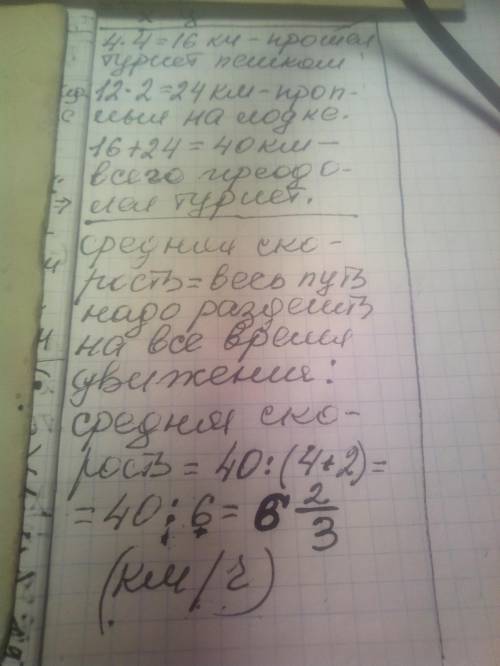 4·4=16 км – прошел
турист пешком
12·2=24 км – проп-
лыл на лодке.
16+24=40 км –
всего преодо-
лел турист.
средняя ско-
рость = весь путь
надо разделить
на все время
движения:
средняя ско-
рость = 40:(4+2)=
=40:6= 6 2/3
(км/ч)